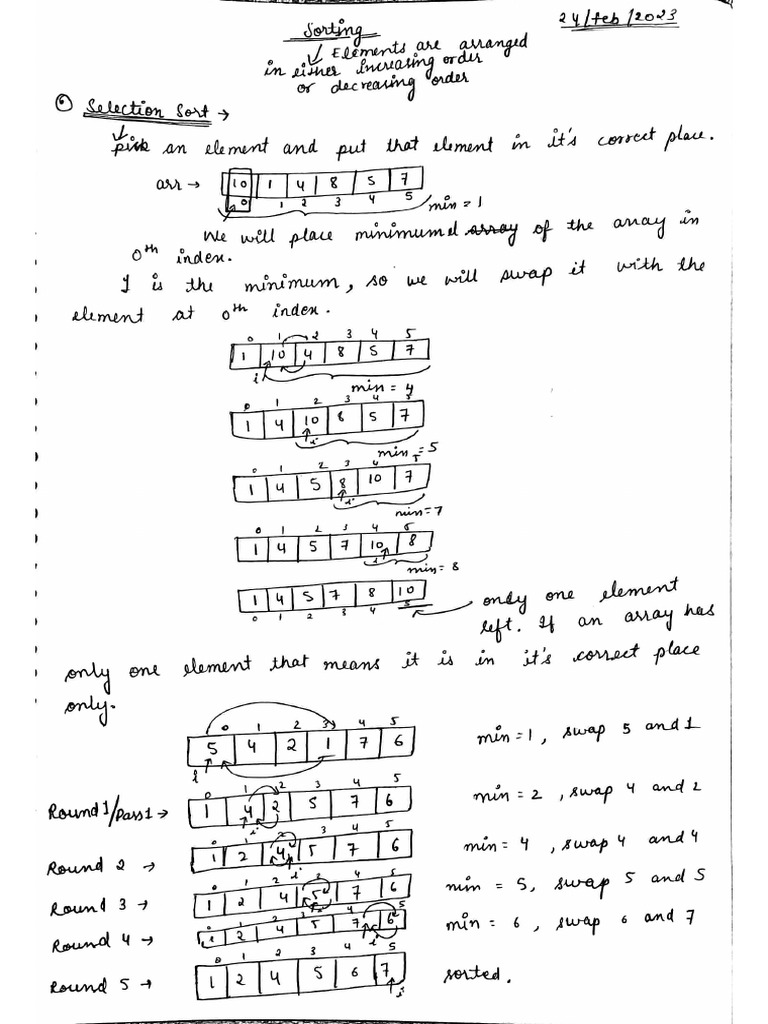 24/Feb/2023
Sorting
↓ Elements are arranged
in either Increasing order
or decreasing order
Selection Sort →
↓ pick an element and put that element in it's correct place.
arr → 10 1 4 8 5 7
0 1 2 3 4 5 min = 1
We will place minimumel array of the array in
0th index.
1 is the minimum, so we will swap it with the
element at 0th index.
0 1 2 3 4 5
1 10 4 8 5 7
i
min = 4
0 1 2 3 4 5
1 4 10 8 5 7
i
min = 5
0 1 2 3 4 5
1 4 5 8 10 7
i
min = 7
0 1 2 3 4 5
1 4 5 7 10 8
i
min = 8
1 4 5 7 8 10
0 1 2 3 4 5
only one element
left. If an array has
only one element that means it is in it's correct place
only.
0 1 2 3 4 5
5 4 2 1 7 6 min = 1, swap 5 and 1
i
0 1 2 3 4 5
Round 1/Pass 1 → 1 4 2 5 7 6 min = 2, swap 4 and 2
i
0 1 2 3 4 5
Round 2 → 1 2 4 5 7 6 min = 4, swap 4 and 4
i
0 1 2 3 4 5
Round 3 → 1 2 4 5 7 6 min = 5, swap 5 and 5
i
Round 4 → 1 2 4 5 7 6 min = 6, swap 6 and 7
i
0 1 2 3 4 5
Round 5 → 1 2 4 5 6 7 sorted.
i